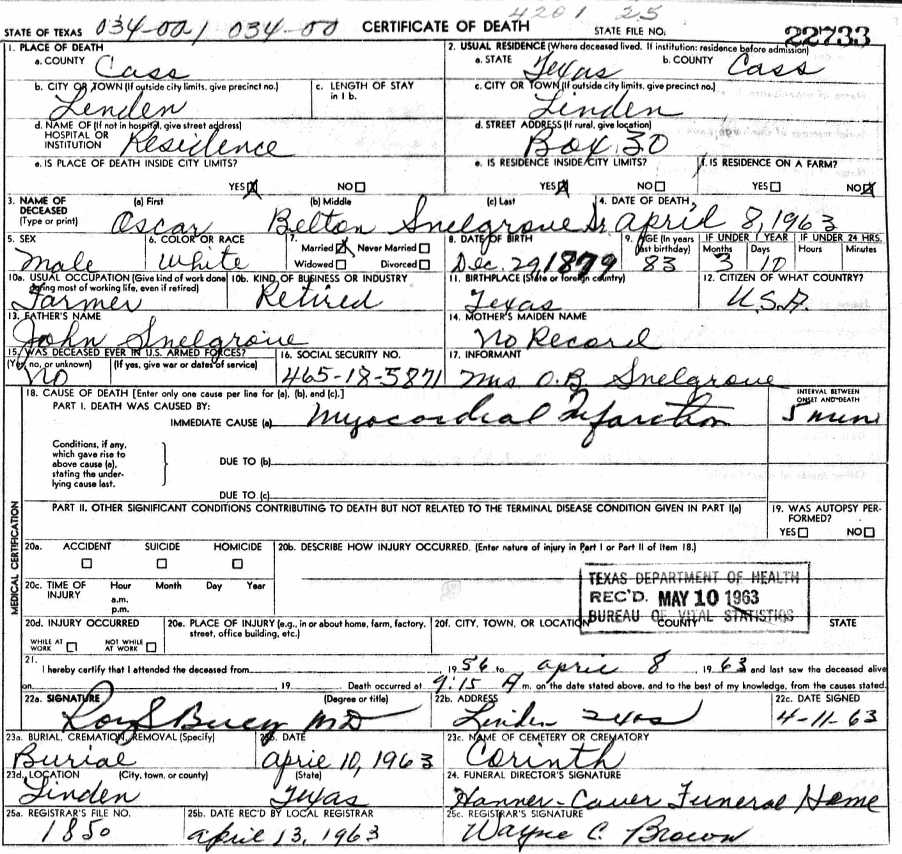 4201 25
STATE OF TEXAS 034-001 034-00 CERTIFICATE OF DEATH STATE FILE NO. 22733
1. PLACE OF DEATH 2. USUAL RESIDENCE (Where deceased lived. If institution: residence before admission)
a. COUNTY Cass a. STATE Texas b. COUNTY Cass
b. CITY OR TOWN (If outside city limits, give precinct no.) Linden c. LENGTH OF STAY in 1 b. c. CITY OR TOWN (If outside city limits, give precinct no.) Linden
d. NAME OF (If not in hospital, give street address) HOSPITAL OR INSTITUTION Residence d. STREET ADDRESS (If rural, give location) Box 30
e. IS PLACE OF DEATH INSIDE CITY LIMITS? e. IS RESIDENCE INSIDE CITY LIMITS? f. IS RESIDENCE ON A FARM?
YES X NO YES X NO YES NO X
3. NAME OF DECEASED (Type or print) (a) First Oscar (b) Middle Belton (c) Last Snelgrove Sr 4. DATE OF DEATH April 8, 1963
5. SEX Male 6. COLOR OR RACE White 7. Married X Never Married Widowed Divorced 8. DATE OF BIRTH Dec. 29 1879 9. AGE (In years last birthday) 83 IF UNDER 1 YEAR Months 3 Days 10 IF UNDER 24 HRS. Hours Minutes
10a. USUAL OCCUPATION (Give kind of work done during most of working life, even if retired) Farmer 10b. KIND OF BUSINESS OR INDUSTRY Retired 11. BIRTHPLACE (State or foreign country) Texas 12. CITIZEN OF WHAT COUNTRY? U.S.A.
13. FATHER'S NAME John Snelgrove 14. MOTHER'S MAIDEN NAME No Record
15. WAS DECEASED EVER IN U.S. ARMED FORCES? (Yes, no, or unknown) No (If yes, give war or dates of service) 16. SOCIAL SECURITY NO. 465-18-5871 17. INFORMANT Mrs O.B. Snelgrove
MEDICAL CERTIFICATION
18. CAUSE OF DEATH [Enter only one cause per line for (a), (b), and (c).] INTERVAL BETWEEN ONSET AND DEATH
PART I. DEATH WAS CAUSED BY:
IMMEDIATE CAUSE (a) Myocardial Infarction 5 min
Conditions, if any, which gave rise to above cause (a), stating the underlying cause last.
DUE TO (b)
DUE TO (c)
PART II. OTHER SIGNIFICANT CONDITIONS CONTRIBUTING TO DEATH BUT NOT RELATED TO THE TERMINAL DISEASE CONDITION GIVEN IN PART I(a) 19. WAS AUTOPSY PERFORMED?
YES NO
20a. ACCIDENT SUICIDE HOMICIDE 20b. DESCRIBE HOW INJURY OCCURRED. (Enter nature of injury in Part I or Part II of Item 18.)
20c. TIME OF INJURY Hour Month Day Year
a.m.
p.m.
TEXAS DEPARTMENT OF HEALTH
REC'D. MAY 10 1963
BUREAU OF VITAL STATISTICS
20d. INJURY OCCURRED WHILE AT WORK NOT WHILE AT WORK 20e. PLACE OF INJURY (e.g., in or about home, farm, factory, street, office building, etc.) 20f. CITY, TOWN, OR LOCATION COUNTY STATE
21. I hereby certify that I attended the deceased from 1956 to April 8 1963 and last saw the deceased alive
on 19 Death occurred at 9:15 A m. on the date stated above, and to the best of my knowledge, from the causes stated.
22a. SIGNATURE (Degree or title) Roy S Bucy MD 22b. ADDRESS Linden Texas 22c. DATE SIGNED 4-11-63
23a. BURIAL, CREMATION, REMOVAL (Specify) Burial 23b. DATE April 10, 1963 23c. NAME OF CEMETERY OR CREMATORY Corinth
23d. LOCATION (City, town, or county) Linden (State) Texas 24. FUNERAL DIRECTOR'S SIGNATURE Hanner-Caver Funeral Home
25a. REGISTRAR'S FILE NO. 1850 25b. DATE REC'D BY LOCAL REGISTRAR April 13, 1963 25c. REGISTRAR'S SIGNATURE Wayne C. Brown